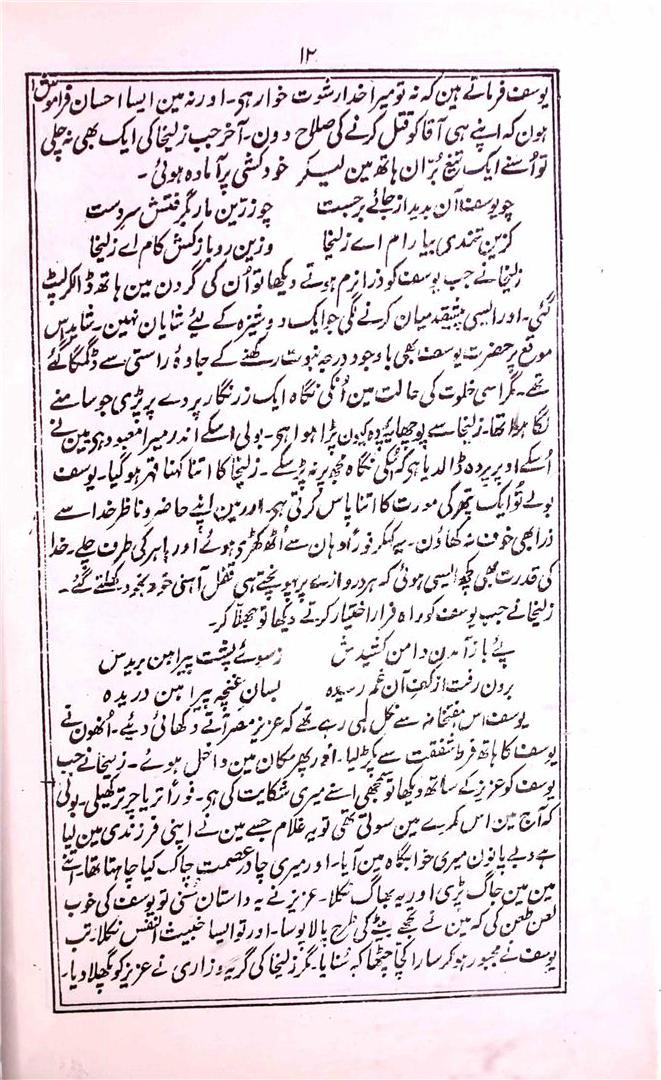 ۱۲
یوسف فرماتے ہین کہ نہ تو میرا خدا رشوت خوار ہی۔ اور نہ مین ایسا احسان فراموش
ہون کہ اپنے ہی آقا کو قتل کرنے کی صلاح دون۔ آخر جب زلیخا کی ایک بھی نہ چلی
تو اُسنے ایک تیغ بُرّان ہاتھ مین لیکر خودکشی پر آمادہ ہوئی۔
چو یوسف آن بدید از جائے برجست چو زرّین مار گرفتش سرِ دست
کزین تندی بیارام اے زلیخا وزین رو باز کش کام اے زلیخا
زلیخا نے جب یوسف کو ذرا نرم ہوتے دیکھا تو اُن کی گردن مین ہاتھ ڈالکر لپٹ
گئی۔ اور ایسی پیشقدمیان کرنے لگی جو ایک دوشیزہ کے لیئے شایان نہین۔ شاید اس
موقع پر حضرت یوسف بھی باوجود درجہ نبوت رکھنے کے جادۂ راستی سے ڈگمگا گئے
تھے۔ مگر اسی خلوت کی حالت مین اُنکی نگاہ ایک زرنگار پردے پر پڑی جو سامنے
لگا ہوا تھا۔ زلیخا سے پوچھا یہ پردہ کیون پڑا ہوا ہی۔ بولی اسکے اندر میرا معبود ہی مین نے
اُسکے اوپر پردہ ڈالدیا ہی کہ اُسکی نگاہ مجھ پر نہ پڑ سکے۔ زلیخا کا اتنا کہنا قہر ہو گیا۔ یوسف
بولے تُو ایک پتھر کی مورت کا اتنا پاس کرتی ہی۔ اور مین اپنے حاضر و ناظر خدا سے
ذرا بھی خوف نہ کھاؤن۔ یہ کہکر فوراً وہان سے اُٹھ کھڑی ہوئے اور باہر کی طرف چلے۔ خدا
کی قدرت بھی کچھ ایسی ہوئی کہ ہر دروازے پر پہونچتے ہی قفل آہنی خود بخود کھلتے گئے۔
زلیخا نے جب یوسف کو راہ فرار اختیار کرتے دیکھا تو جھلّا کر۔
پئے باز آمدن دامن کشیدش زسوے پشت پیراہن بریدش
برون رفت از کفِ آن غم رسیدہ بسان غنچہ پیراہن دریدہ
یوسف اس مفتخانہ سے نکل ہی رہے تھے کہ عزیز مصر آتے دکھائی دیئے۔ اُنھون نے
یوسف کا ہاتھ فرط شفقت سے پکڑ لیا۔ اور پھر مکان مین داخل ہوئے۔ زلیخا نے جب
یوسف کو عزیز کے ساتھ دیکھا تو سمجھی اسنے میری شکایت کی ہی۔ فوراً تریا چرتر کھیلی۔ بولی
کہ آج مین اس کمرے مین سوتی تھی تو یہ غلام جسے مین نے اپنی فرزندی مین لیا
ہے دبے پانون میری خوابگاہ مین آیا۔ اور میری چادر عصمت چاک کیا چاہتا تھا۔ اتنے
مین مین جاگ پڑی اور یہ بھاگ نکلا۔ عزیز نے یہ داستان سُنی تو یوسف کی خوب
لعن طعن کی کہ مین نے تجھے بیٹے کی طرح پالا پوسا۔ اور تو ایسا خبیث النفس نکلا۔ تب
یوسف نے مجبور ہو کر سارا کچا چٹھا کہہ سُنایا۔ مگر زلیخا کی گریہ و زاری نے عزیز کو پگھلا دیا۔